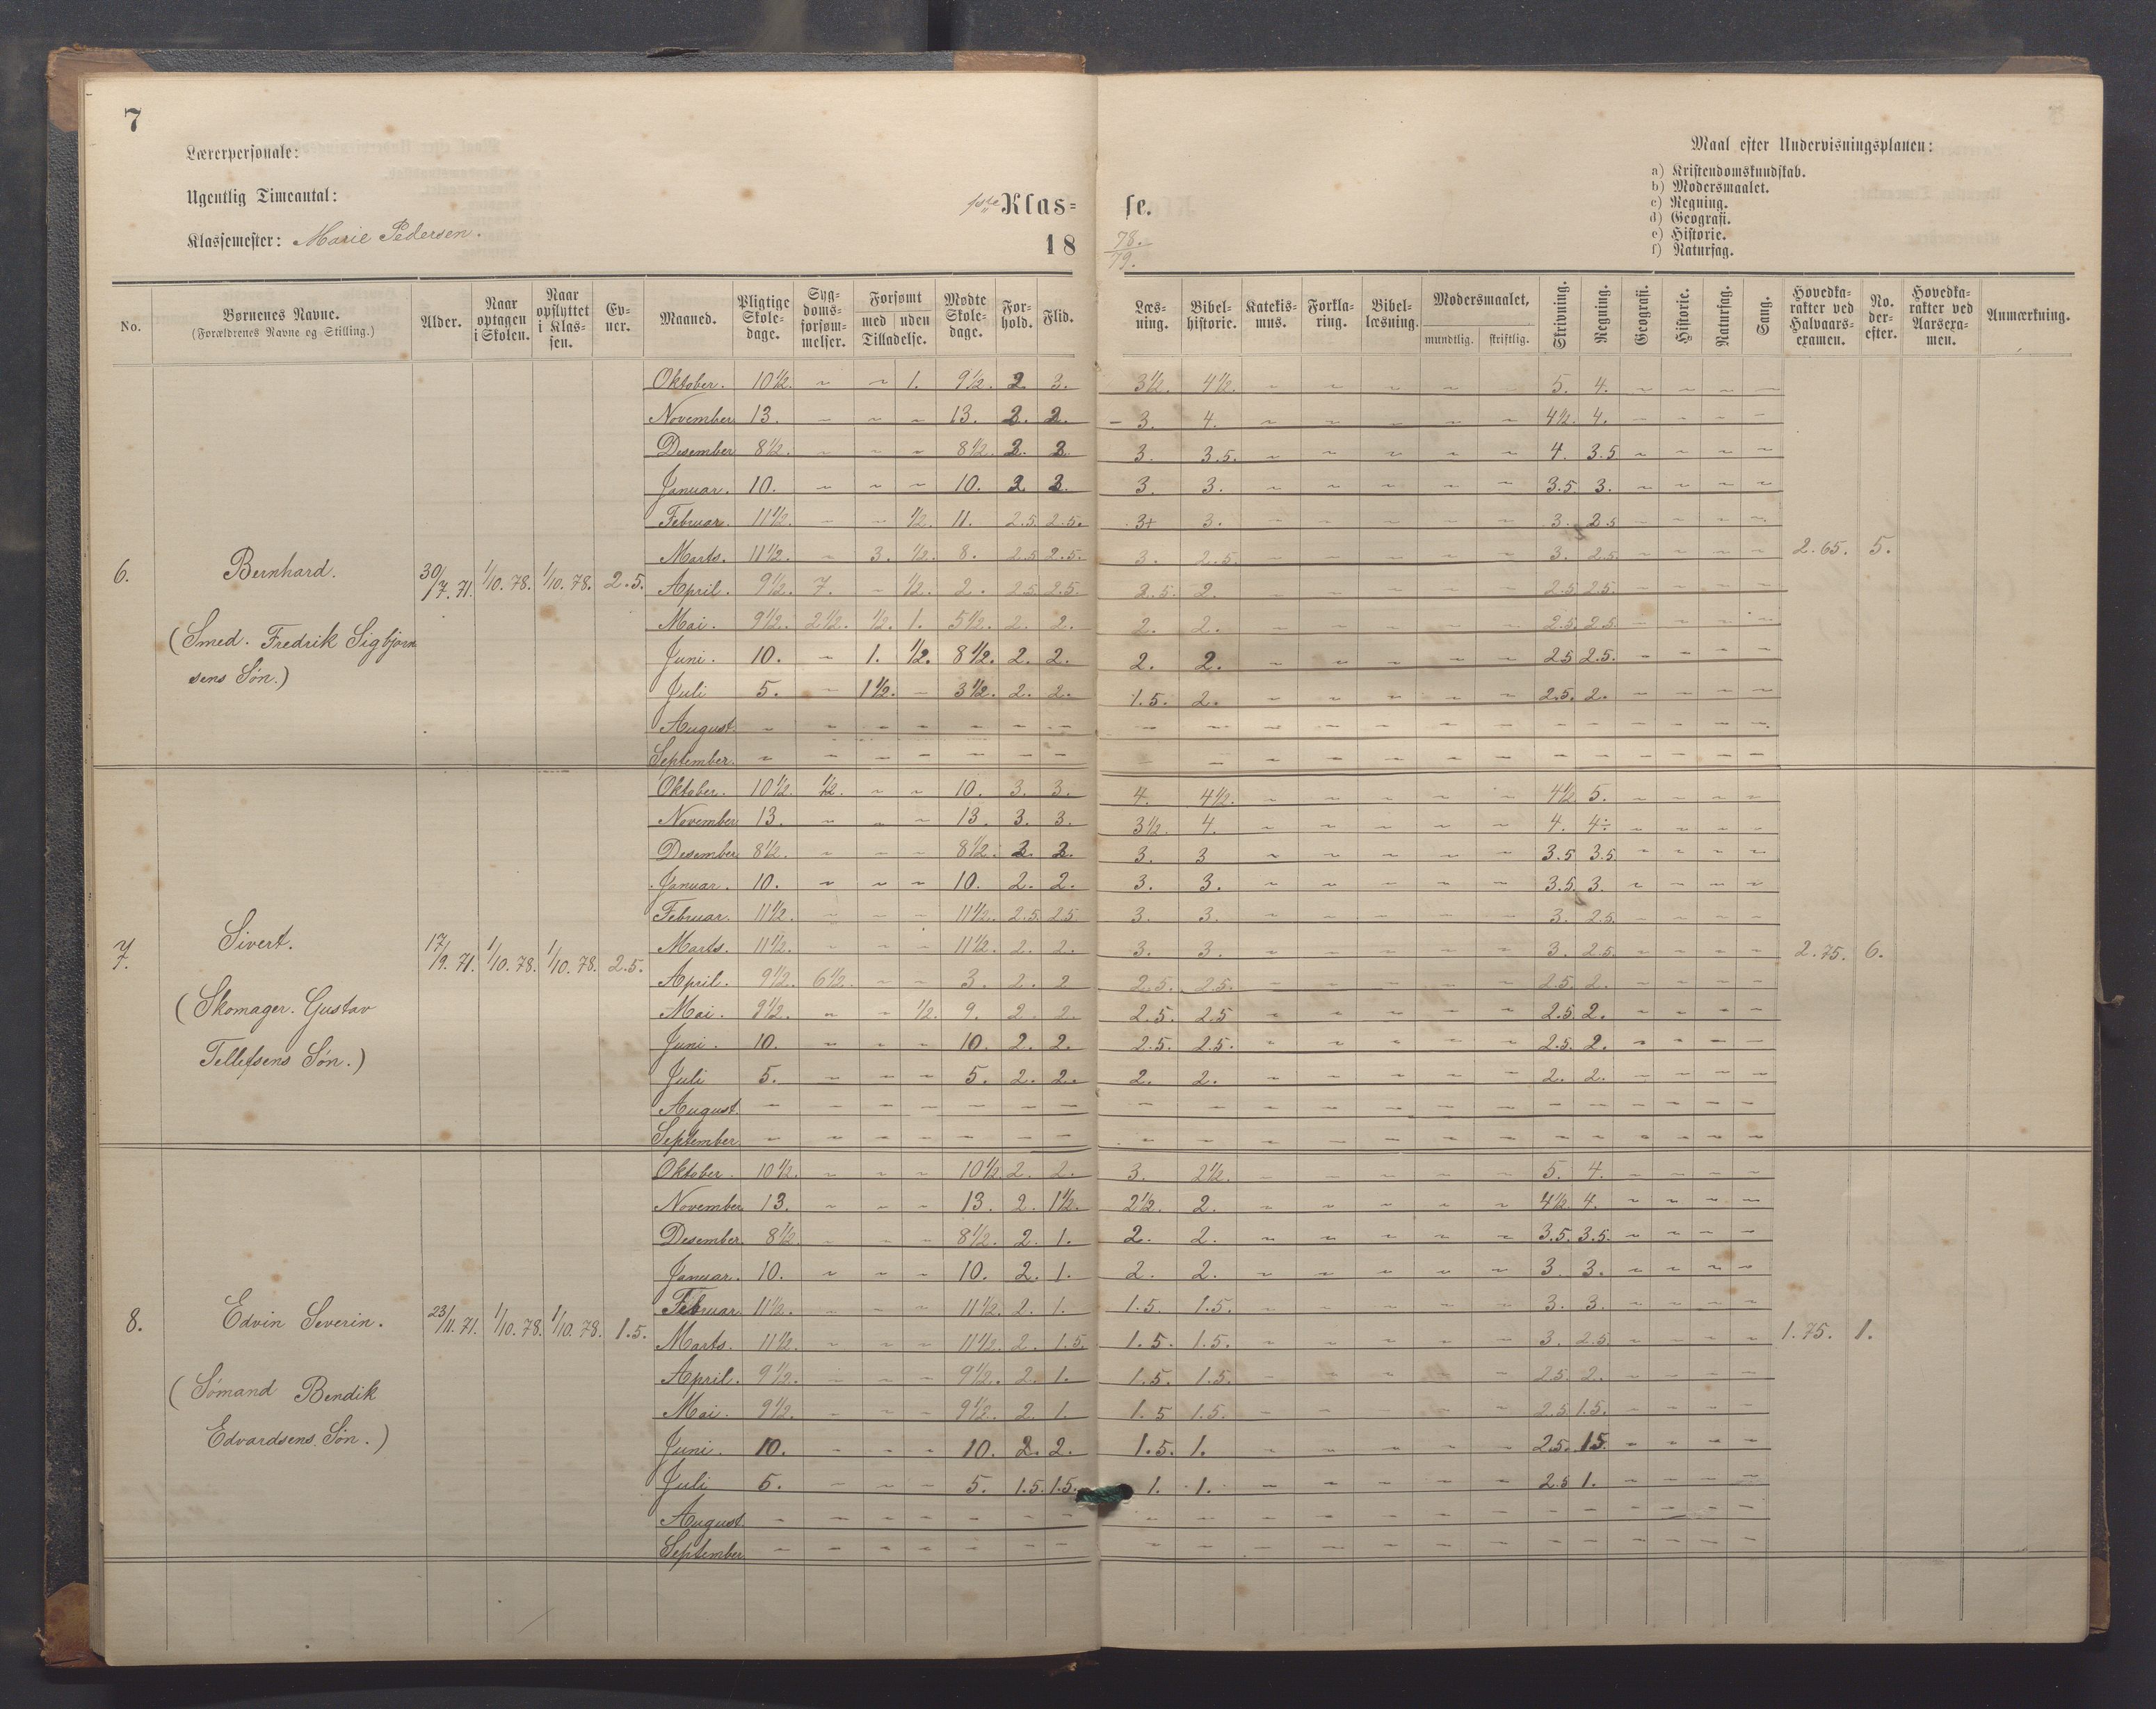 7
Lærerpersonale:
Ugentlig Timeantal:
Klassemester: Marie Pedersen.
1ste Klas= se.
18 78./79.
Maal efter Undervisningsplanen:
a) Kristendomskundskab.
b) Modersmaalet.
c) Regning.
d) Geografi.
e) Historie.
f) Naturfag.
No. | Børnenes Navne. (Forældrenes Navne og Stilling.) | Alder. | Naar optagen i Skolen. | Naar opflyttet i Klas-sen. | Ev-ner. | Maaned. | Pligtige Skole-dage. | Syg-doms-forsøm-melser. | Forsømt med uden Tilladelse. | Mødte Skole-dage. | For-hold. | Flid. | Læs-ning. | Bibel-historie. | Katekis-mus. | Forkla-ring. | Bibel-læsning. | Modersmaalet, mundtlig. skriftlig. | Skrivning. | Regning. | Geografi. | Historie. | Naturfag. | Sang. | Hovedka-rakter ved Halvaars-examen. | No. der-efter. | Hovedka-rakter ved Aarsexa-men. | Anmærkning.
6. Bernhard. 30/7. 71. 1/10. 78. 1/10. 78. 2.5.
(Smed. Fredrik Sigbjørn
sens Søn.)
Oktober. 10 1/2. ~ ~ 1. 9 1/2. 2. 3. 3 1/2. 4 1/2. ~ ~ ~ ~ ~ 5. 4. ~ ~ ~ ~
November 13. ~ ~ ~ 13. 2. 2. 3. 4. ~ ~ ~ ~ ~ 4 1/2. 4. ~ ~ ~ ~
Desember 8 1/2. ~ ~ ~ 8 1/2. 2. 2. 3. 3.5. ~ ~ ~ ~ ~ 4. 3.5 ~ ~ ~ ~
Januar. 10. ~ ~ ~ 10. 2. 2. 3. 3. ~ ~ ~ ~ ~ 3.5. 3. ~ ~ ~ ~
Februar. 11 1/2. ~ ~ 1/2. 11. 2.5. 2.5. 3+ 3. ~ ~ ~ ~ ~ 3. 2.5 ~ ~ ~ ~
Marts. 11 1/2. ~ 3. 1/2. 8. 2.5 2.5. 3. 2.5. ~ ~ ~ ~ ~ 3. 2.5. ~ ~ ~ ~ 2.65. 5.
April. 9 1/2. 7. ~ 1/2. 2. 2.5. 2.5. 2.5. 2. ~ ~ ~ ~ ~ 2.5 2.5. ~ ~ ~ ~
Mai. 9 1/2. 2 1/2. 1/2. 1. 5 1/2. 2. 2. 2. 2. ~ ~ ~ ~ ~ 2.5. 2.5. ~ ~ ~ ~
Juni. 10. ~ 1. 1/2. 8 1/2. 2. 2. 2. 2. ~ ~ ~ ~ ~ 2.5 2.5. ~ ~ ~ ~
Juli 5. ~ 1 1/2. ~ 3 1/2. 2. 2. 1.5. 2. ~ ~ ~ ~ ~ 2.5. 2. ~ ~ ~ ~
August. ~ ~ ~ ~ ~ ~ ~
September. ~ ~ ~ ~ ~ ~ ~
7. Sivert. 17/9. 71. 1/10. 78. 1/10. 78. 2.5.
(Skomager. Gustav
Tellefsens Søn.)
Oktober. 10 1/2. 1/2. ~ ~ 10. 3. 3. 4. 4 1/2. ~ ~ ~ ~ ~ 4 1/2 5. ~ ~ ~ ~
November 13. ~ ~ ~ 13. 3. 3. 3 1/2. 4. ~ ~ ~ ~ ~ 4. 4÷ ~ ~ ~ ~
Desember 8 1/2. ~ ~ ~ 8 1/2. 2. 2. 3. 3 ~ ~ ~ ~ ~ 3.5 3.5. ~ ~ ~ ~
Januar. 10. ~ ~ ~ 10. 2. 2. 3. 3. ~ ~ ~ ~ ~ 3.5. 3. ~ ~ ~ ~
Februar. 11 1/2. ~ ~ ~ 11 1/2. 2.5. 2.5 3. 3. ~ ~ ~ ~ ~ 3. 2.5. ~ ~ ~ ~
Marts. 11 1/2. ~ ~ ~ 11 1/2. 2. 2. 3. 3. ~ ~ ~ ~ ~ 3. 2.5. ~ ~ ~ ~ 2.75. 6.
April. 9 1/2. 6 1/2. ~ ~ 3. 2. 2 2.5. 2.5. ~ ~ ~ ~ ~ 2.5 2. ~ ~ ~ ~
Mai. 9 1/2. ~ ~ 1/2. 9. 2. 2. 2.5. 2.5 ~ ~ ~ ~ ~ 2.5. 2. ~ ~ ~ ~
Juni. 10. ~ ~ ~ 10. 2. 2. 2.5. 2.5. ~ ~ ~ ~ ~ 2.5. 2. ~ ~ ~ ~
Juli 5. ~ ~ ~ 5. 2. 2. 2. 2. ~ ~ ~ ~ ~ 2. 2. ~ ~ ~ ~
August. ~ ~ ~ ~ ~ ~ ~
September. ~ ~ ~ ~ ~ ~ ~
8. Edvin Severin. 23/11. 71. 1/10. 78. 1/10. 78. 1.5.
(Sømand Bendik
Edvardsens Søn.)
Oktober. 10 1/2. ~ ~ ~ 10 1/2. 2. 2. 3. 2 1/2. ~ ~ ~ ~ ~ 5. 4. ~ ~ ~ ~
November 13. ~ ~ ~ 13. 2. 1 1/2. 2 1/2. 2. ~ ~ ~ ~ ~ 4 1/2. 4. ~ ~ ~ ~
Desember. 8 1/2. ~ ~ ~ 8 1/2. 2. 1. 2. 2. ~ ~ ~ ~ ~ 3.5. 3.5. ~ ~ ~ ~
Januar. 10. ~ ~ ~ 10. 2. 1. 2. 2. ~ ~ ~ ~ ~ 3. 3. ~ ~ ~ ~
Februar. 11 1/2. ~ ~ ~ 11 1/2. 2. 1. 1.5. 1.5. ~ ~ ~ ~ ~ 3. 3. ~ ~ ~ ~
Marts. 11 1/2. ~ ~ ~ 11 1/2. 2. 1.5. 1.5. 1.5. ~ ~ ~ ~ ~ 3. 2.5. ~ ~ ~ ~ 1.75. 1.
April. 9 1/2. ~ ~ ~ 9 1/2. 2. 1. 1.5. 1.5. ~ ~ ~ ~ ~ 2.5. 2. ~ ~ ~ ~
Mai. 9 1/2. ~ ~ ~ 9 1/2. 2. 1. 1.5 1.5. ~ ~ ~ ~ ~ 2.5 1.5. ~ ~ ~ ~
Juni. 10. ~ ~ ~ 10. 2. 2. 1.5. 1. ~ ~ ~ ~ ~ 2.5. 1.5. ~ ~ ~ ~
Juli 5. ~ ~ ~ 5. 1.5. 1.5. 1. 1. ~ ~ ~ ~ ~ 2.5 1. ~ ~ ~ ~
August. ~ ~ ~ ~ ~ ~ ~
September. ~ ~ ~ ~ ~ ~ ~